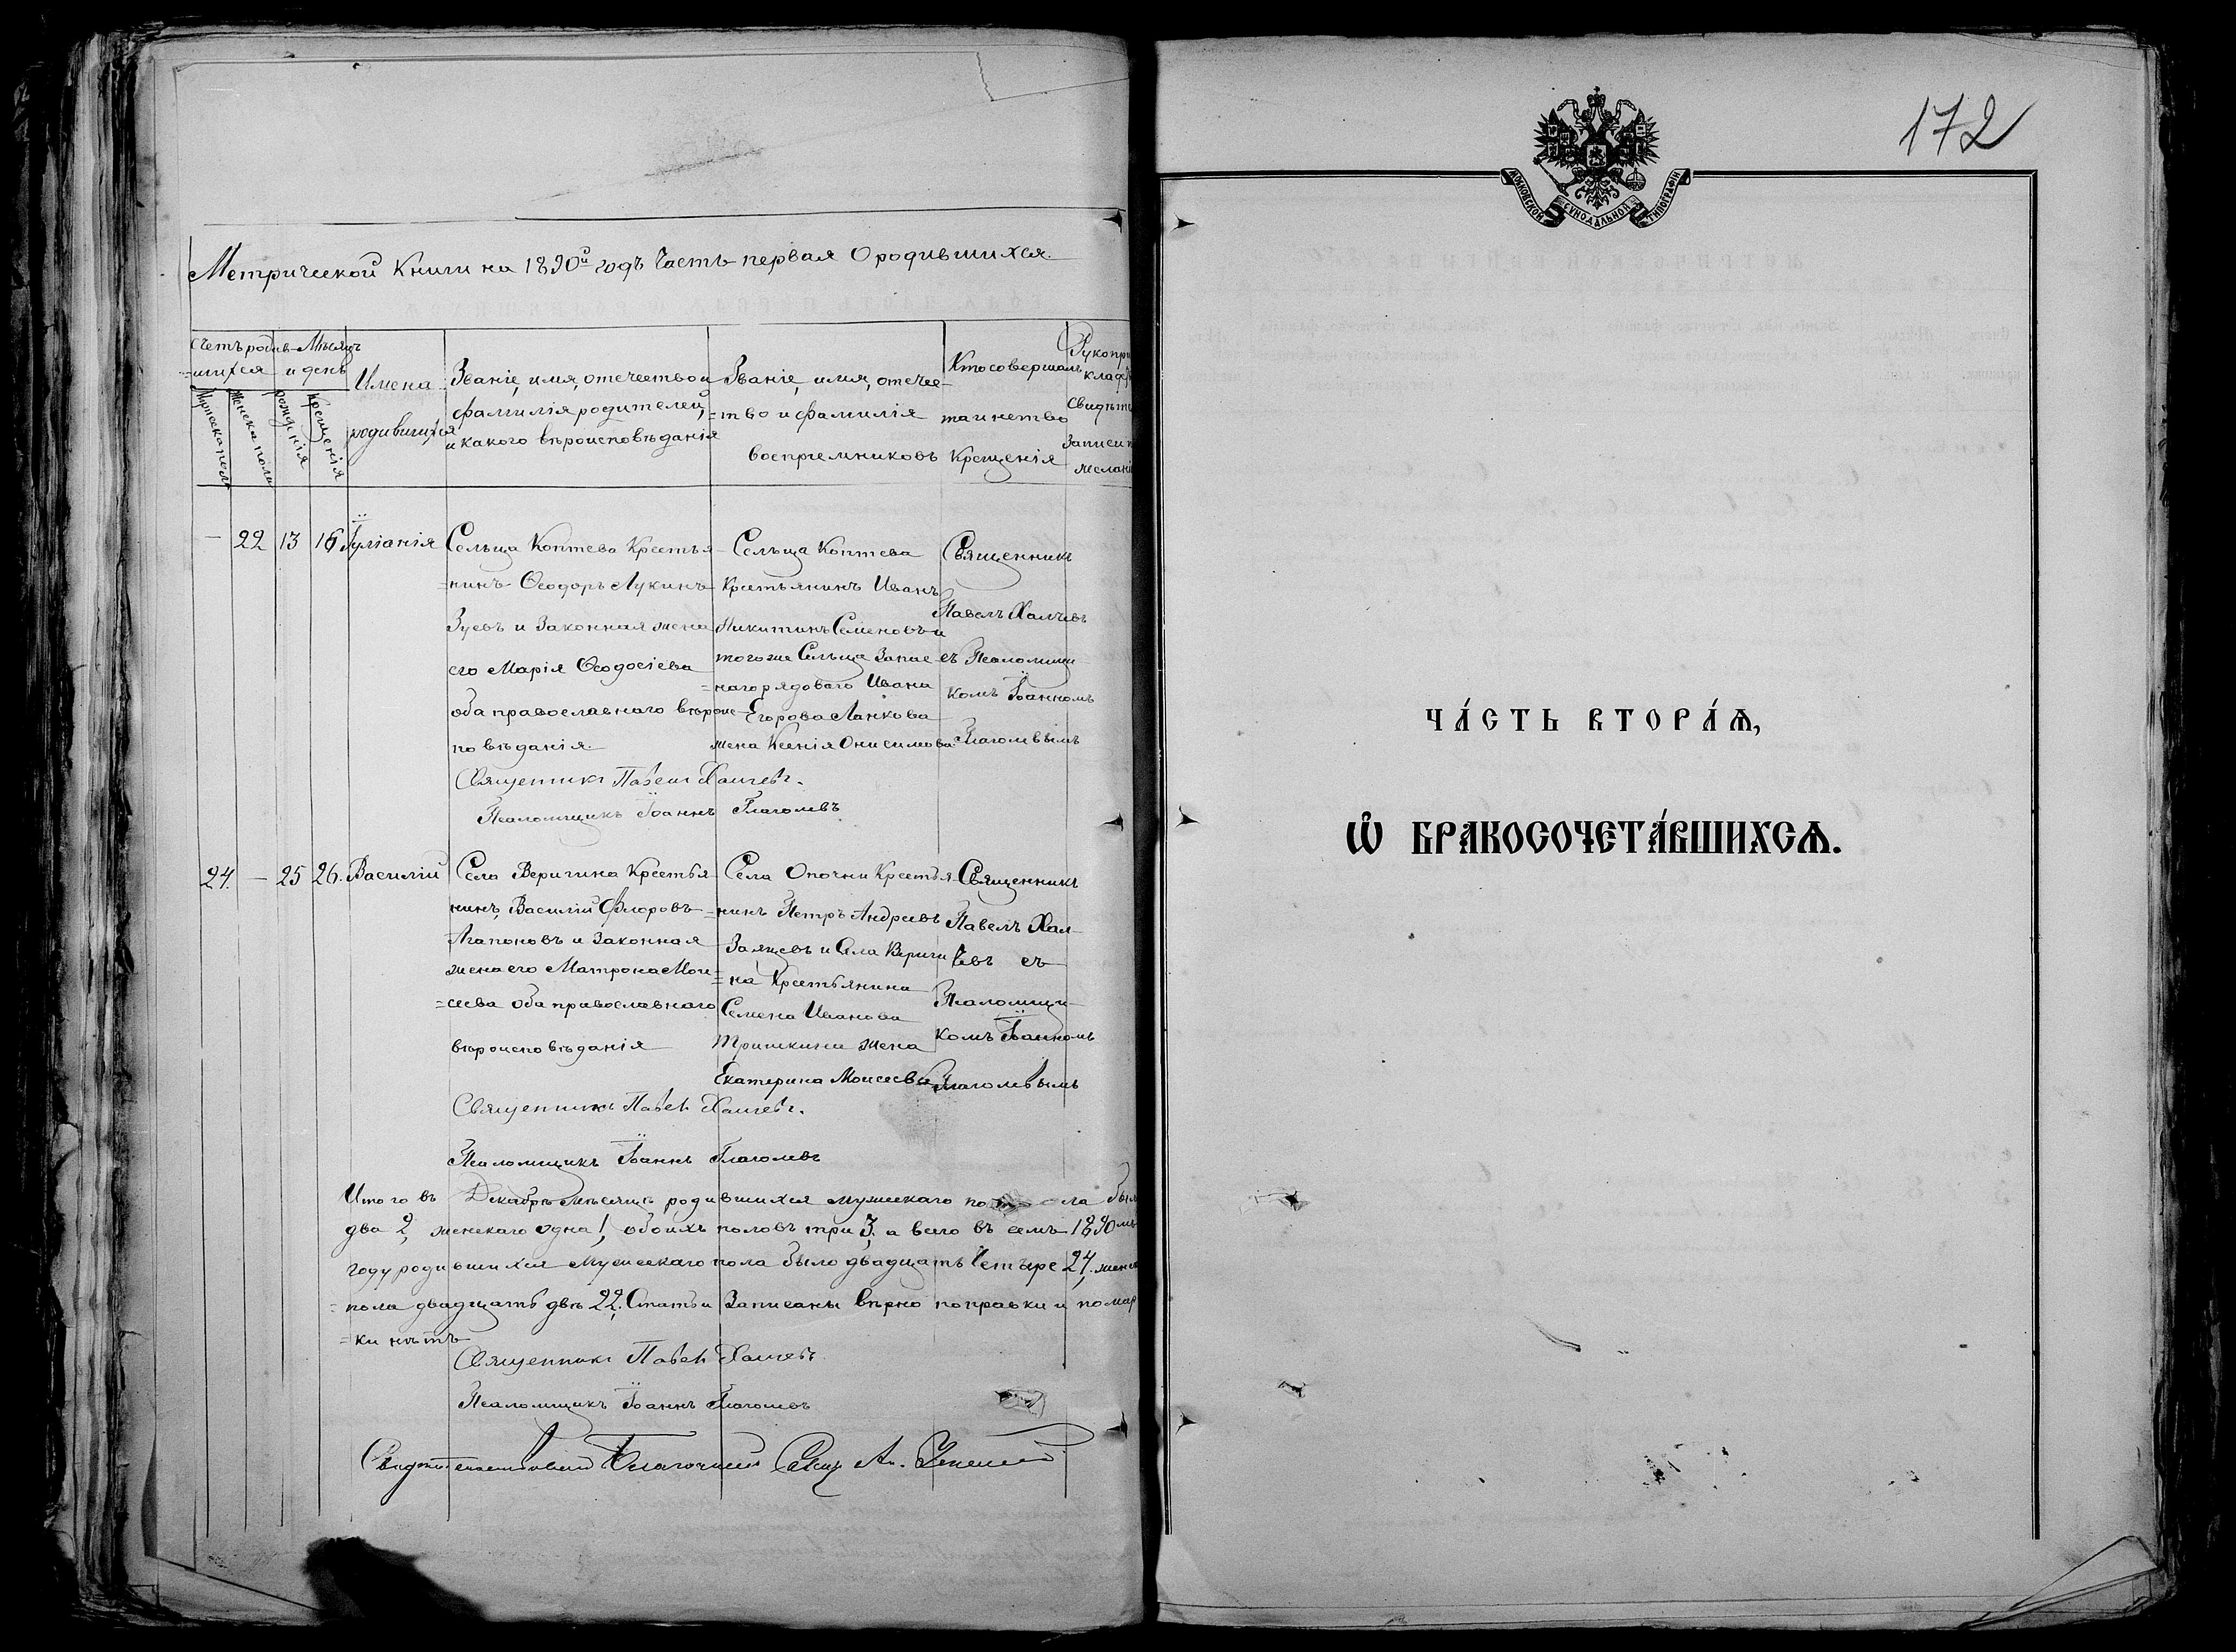 Метрической Книги на 1890й годъ Часть первая О родившихся.
Счетъ родив-
=шихся
Мужеска пола
Женска пола
Мѣсяцъ
и день
рожденія
Крещенія
Имена
родившихся
Званіе, имя, отечество и
фамилія родителей,
и какого вѣроисповѣданія
Званіе, имя, отечес-
=тво и фамилія
воспріемниковъ
Кто совершалъ
таинство
Крещенія
Рукопри
клад
свидѣт
записи
— 22 13 16 Іуліанія
Сельца Коптева Крестья-
=нинъ Ѳеодоръ Лукинъ
Зуевъ и Законная жена
его Марія Ѳеодосіева
оба православнаго вѣроис-
повѣданія
Сельца Коптева
Крестьянинъ Иванъ
Никитинъ Семеновъ и
того же Сельца Запас-
=наго рядоваго Ивана
Егорова Ланкова
жена Ксенія Онисимова
Священникъ
Павелъ Халчевъ
съ Псаломщи-
комъ Іоанномъ
Глаголевымъ
Священникъ Павелъ Халчевъ.
Псаломщикъ Іоаннъ Глаголевъ
24. — 25 26. Василій
Села Веригина Крестья-
нинъ, Василій Флоровъ
Агапоновъ и Законная
жена его Матрона Мои-
=сеева оба православнаго
вѣроисповѣданія
Села Опочни Крестья-
=нинъ Петръ Андреевъ
Заяцевъ и Села Вериги-
=на Крестьянина
Семена Иванова
Тришкина жена
Екатерина Моисеева
Священникъ
Павелъ Хал-
чевъ съ
Псаломщи-
комъ Іоанномъ
Глаголевымъ
Священникъ Павелъ Халчевъ.
Псаломщикъ Іоаннъ Глаголевъ
Итого въ Декабрѣ Мѣсяцѣ родившихся мужескаго пола был
два 2, женскаго одна 1, обоихъ половъ три 3, а всего въ семъ 1890мъ
году родившихся Мужескаго пола было двадцать Четыре 24, женск
=пола двадцать двѣ 22. Статьи Записаны вѣрно поправки и помар
=ки нѣтъ
Священникъ Павелъ Халчевъ
Псаломщикъ Іоаннъ Глаголевъ
Свидѣтельствовалъ Благочинный Свящ. Ал.
172
МОСКОВСКОЙ СѴНОДАЛЬНОЙ ТИПОГРАФІИ
ЧА́СТЬ ВТОРА́Ѧ,
Ѽ БРАКОСОЧЕТА́ВШИХСѦ.